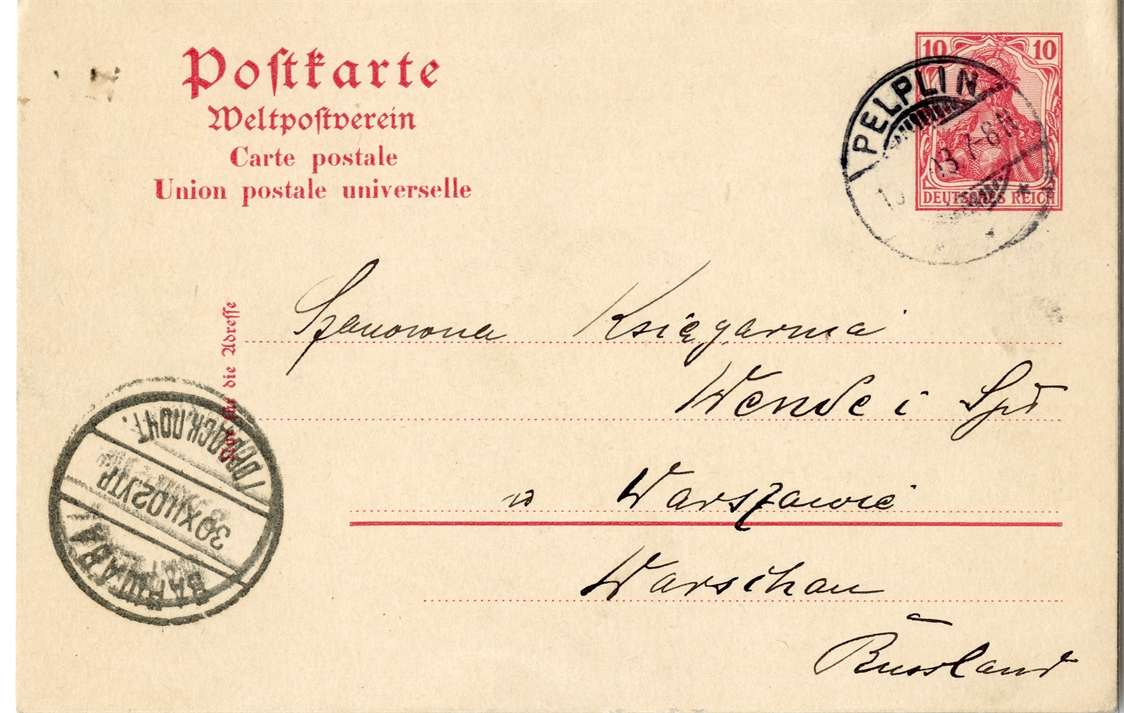 Postkarte
Weltpostverein
Carte postale
Union postale universelle
10 10
DEUTSCHES REICH
PELPLIN
03 7-8N
Nur für die Adresse
Szanowna Księgarnia
Wende i Sp
w Warszawie
Warschau
Russland
ВАРШАВА
30 XII 02 УТР
ГОРОДСК. ПОЧТ.